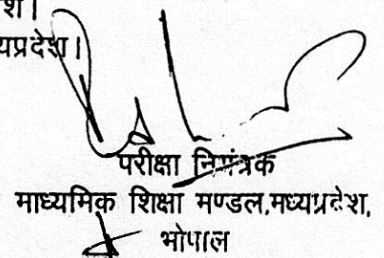 श।
यप्रदेश।
परीक्षा नियंत्रक
माध्यमिक शिक्षा मण्डल,मध्यप्रदेश,
भोपाल